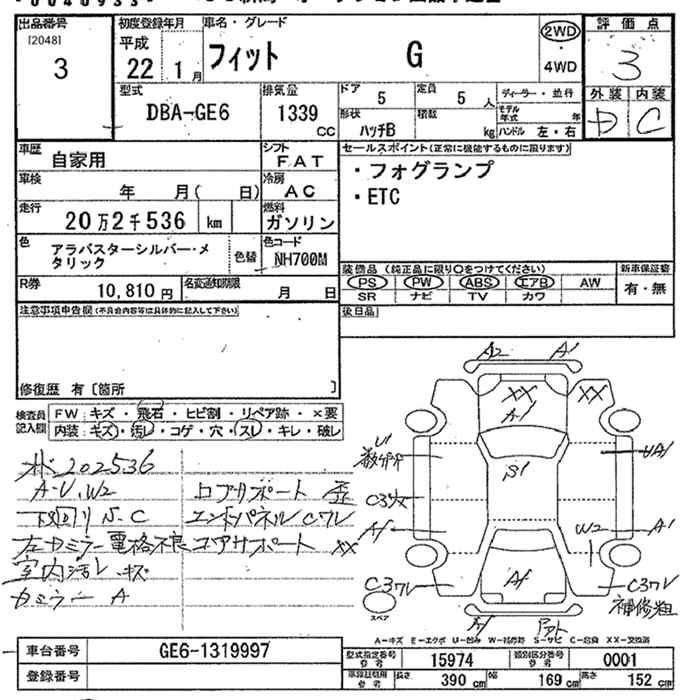 出品番号
[2048]
3
初度登録年月
平成
22 1月
車名・グレード
フィット G
2WD
・
4WD
評価点
3
外装 内装
D C
型式
DBA-GE6
排気量
1339
CC
ドア
5
定員
5 人
形状
ハッチB
積載
kg
ディーラー・並行
モデル年式 年
ハンドル 左・右
車歴
自家用
シフト
FAT
車検
年 月( 日)
冷房
AC
走行
20万2千536 km
燃料
ガソリン
色
アラバスターシルバー・メ
タリック
色替
色コード
NH700M
R券
10,810円
名変通知期限
月 日
セールスポイント(正常に機能するものに限ります)
・フォグランプ
・ETC
装備品(純正品に限り〇をつけてください)
PS PW ABS エアB AW
SR ナビ TV カワ
新車保証書
有・無
後日品
注意事項申告欄(不具合内容等は具体的に記入して下さい)
修復歴 有〔箇所 〕
検査員
記入欄
FW キズ・飛石・ヒビ割・リペア跡・×要
内装 キズ・汚レ・コゲ・穴・スレ・キレ・破レ
メ 202536
A-U.W2
下回り S.C
左カミラー電格不良
室内汚レ キズ
カミラー A
ロアサポート 歪
エンドパネル Cワレ
コアサポート XX
A2 A1
XX XX
A1
U1
S1
UA1
C3
Af
W2
A1
C3ワレ
Af
C3ワレ
補修粗
スペア
A-キズ E-エクボ U-凹み W-補修跡 S-サビ C-腐食 XX-交換済
車台番号
GE6-1319997
登録番号
型式指定番号
参考
15974
類別区分番号
参考
0001
車検証記載
参考
長さ 390 cm
幅 169 cm
高さ 152 cm